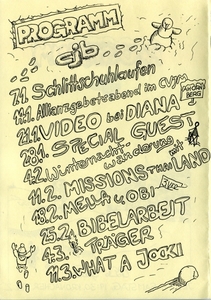 PROGRAMM
cjb
7.1. Schlittschuhlaufen
14.1. Allianzgebetabend im CVJM
21.1. VIDEO bei DIANA
28.1. SPECIAL GUEST
4.2. Winternacht-
wanderung
11.2. MISSIONSTRUPP LAND
18.2. MELLA u. OBI
25.2. BIBELARBEIT
4.3. TRÄGER
11.3. WHAT A JOCKI